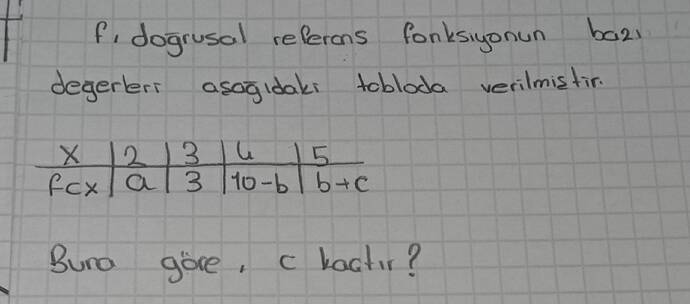 f, doğrusal referans fonksiyonun bazı
değerleri aşağıdaki tabloda verilmiştir.
x | 2 | 3 | 4 | 5
f(x | a | 3 | 10-b | b+c
Buna göre, c kaçtır?